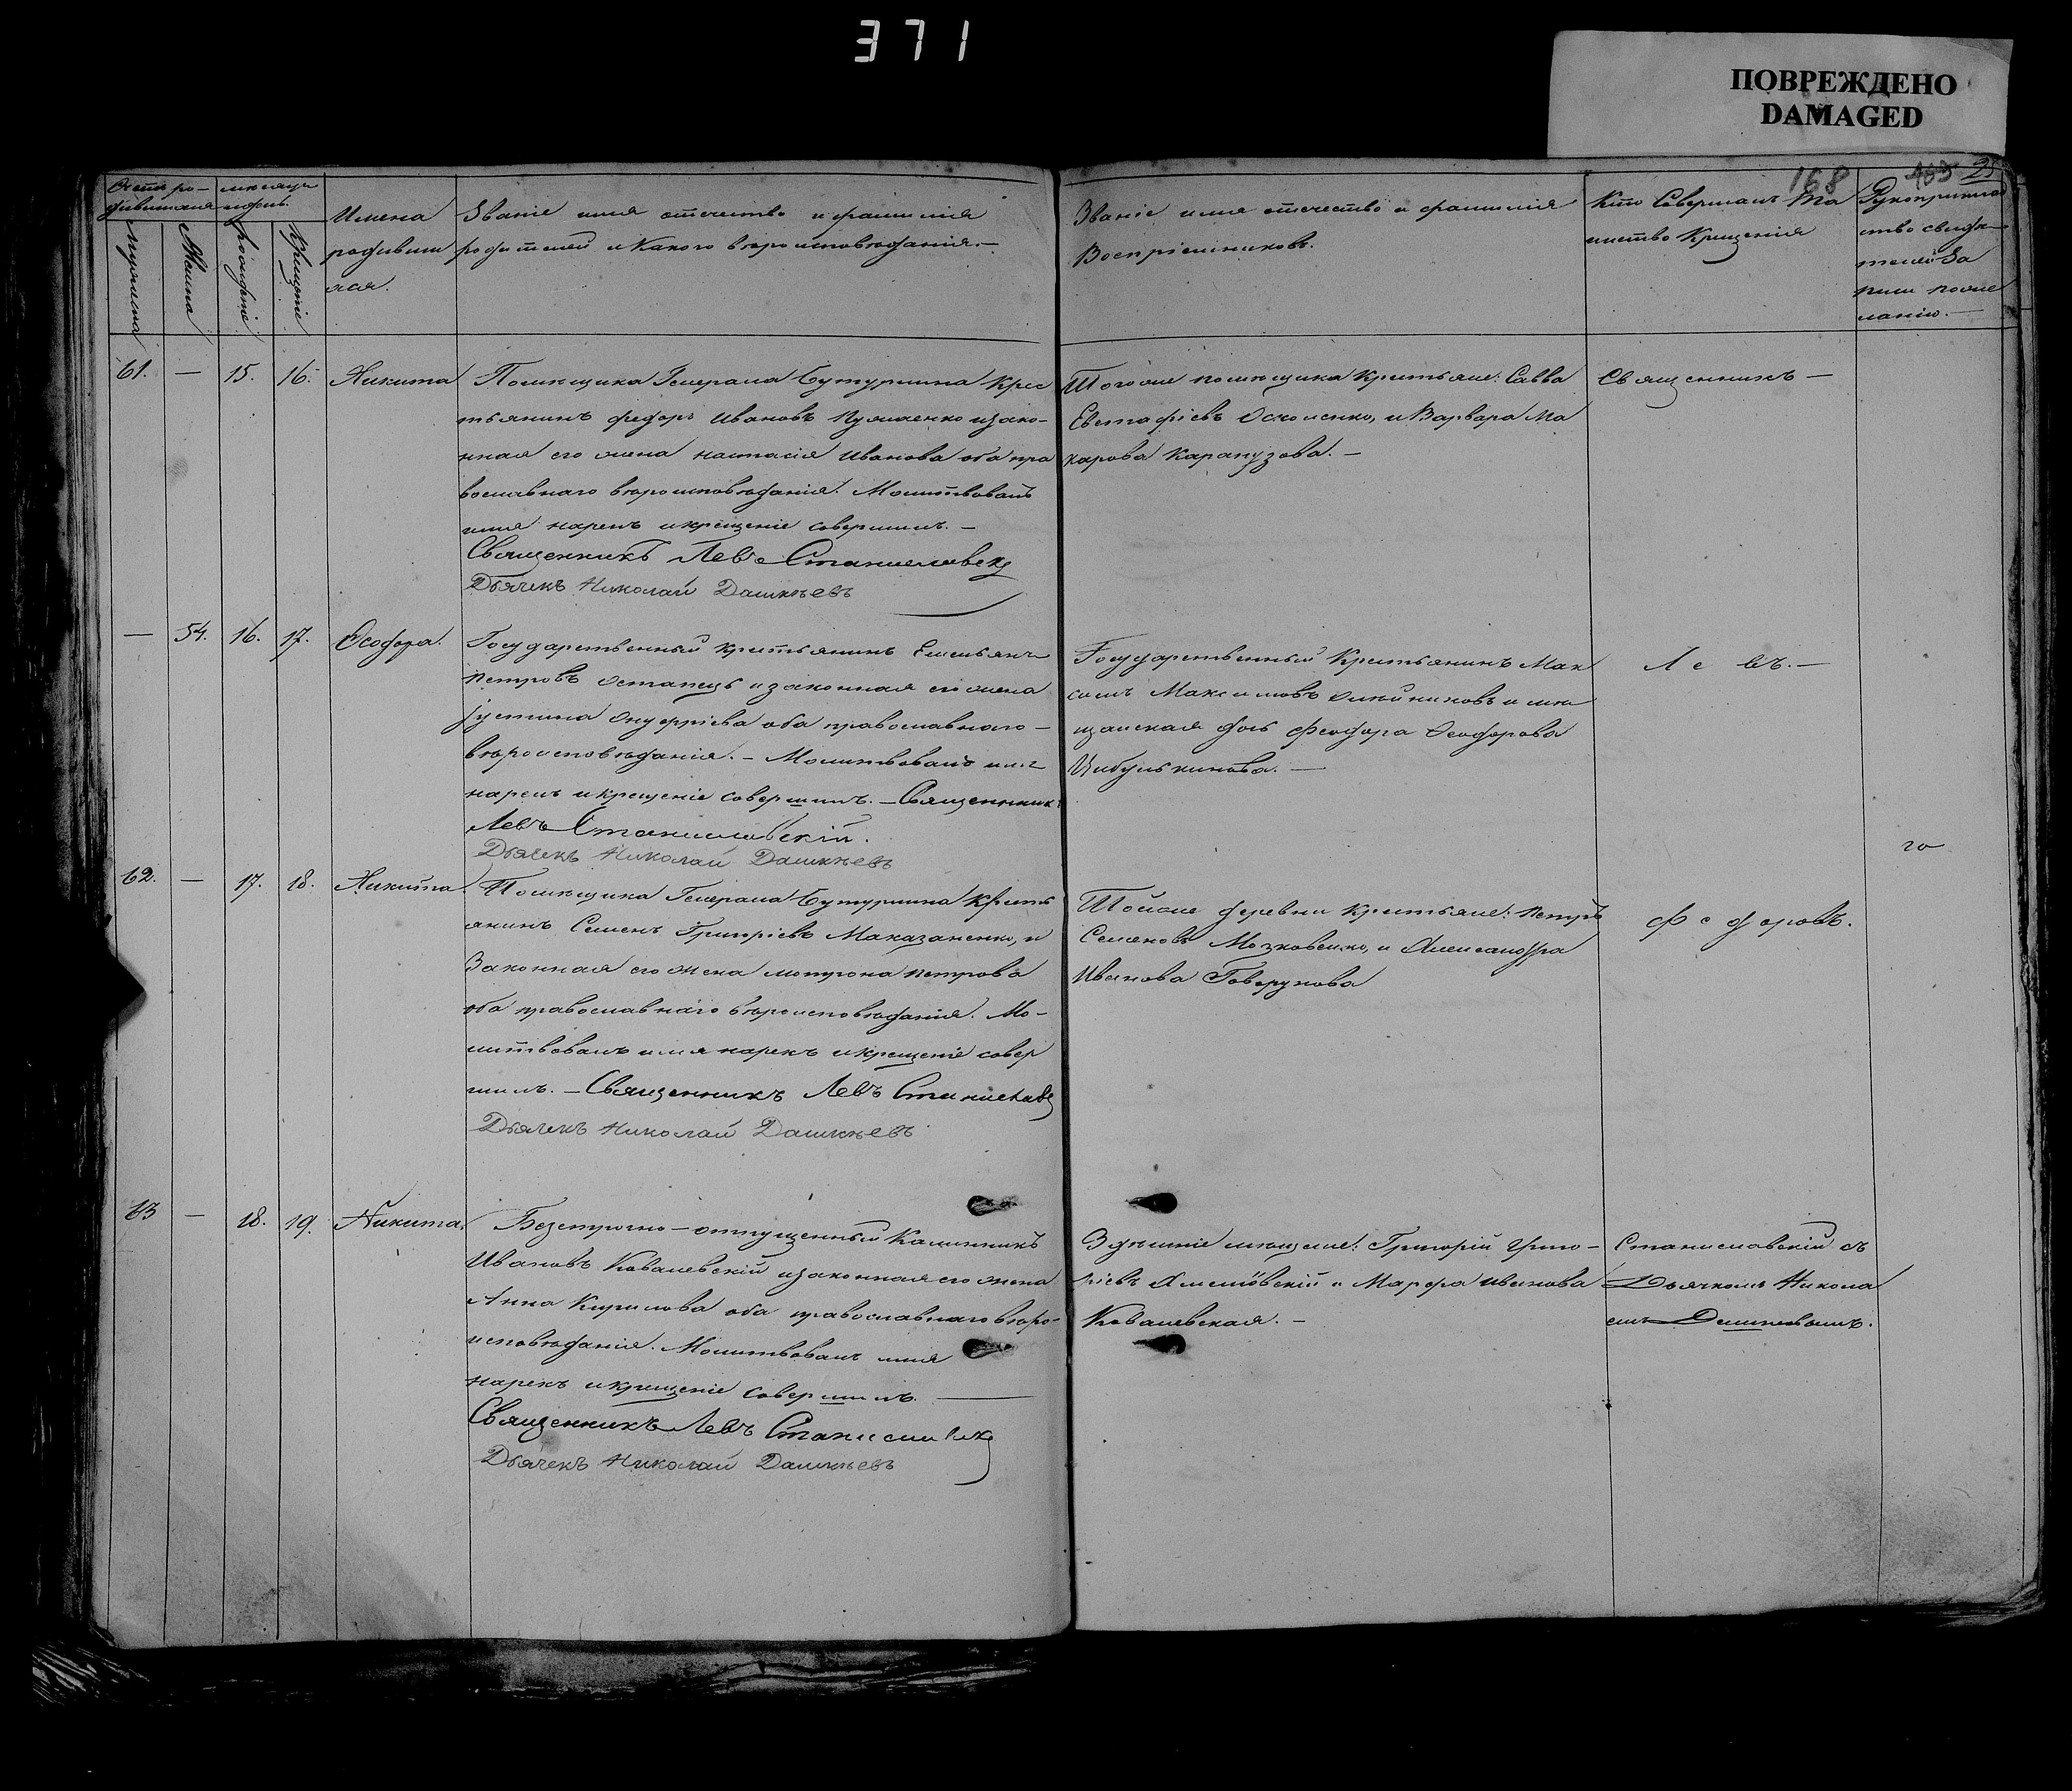 371
ПОВРЕЖДЕНО
DAMAGED
168
Счетъ ро-
дившихся
мужеска
Женска
рожденіе
Крещеніе
Имена
родивши
хся.
Званіе имя отечество и фамилія
родителей и Какого вѣроисповѣданія.—
Званіе имя отечество и фамилія
Воспріемниковъ.
Кто Совершалъ Та
инство Крещенія
Рукоприклад
ство свидѣ
телей За
писи по же
ланію.—
61. — 15. 16. Никита
Помѣщика Генерала Бутурлина Крес
тьянинъ федоръ Ивановъ изако-
нная его жена настасія Иванова оба пра
вославнаго вѣроисповѣданія. Молитвовалъ
имя нарекъ икрещеніе совершилъ.—
Священникъ Левъ Станиславск
Дьячекъ Николай Дашкѣевъ
Тогоже помѣщика Крестьяне: Савва
Евстафіевъ и Варвара Ма
карова Карапузова.—
Священникъ —
— 54. 16. 17. Ѳеодора.
Государственный Крестьянинъ Емельянъ
Петровъ Остапецъ изаконная его жена
Іустина Онуфріева оба православнаго—
вѣроисповѣданія.— Молитвовалъ имя
нарекъ икрещеніе совершилъ.—Священник
Левъ Станиславскій.
Дьячекъ Николай Дашкѣевъ
Государственный Крестьянинъ Мак
симъ Максимовъ Олейниковъ и мѣ
щанская дочь Феодора Ѳеодорова
Цибулькинова.—
Ле въ.—
го
62. — 17. 18. Никита.
Помѣщика Генерала Бутурлина Кресть
янинъ Семенъ Григоріевъ Маказаненко, и
Законная его жена мотрона петрова
оба православнаго вѣроисповѣданія. Мо-
литвовалъ имя нарекъ икрещеніе совер
шилъ.—Священникъ Левъ Станислав
Дьячекъ Николай Дашкѣевъ
Тойже деревни Крестьяне: Петръ
Семеновъ Мозковенко, и Александра
Иванова Говорунова
Федоровъ.
63 — 18. 19. Никита.
Безсрочно—отпущенный Калинникъ
Ивановъ Ковалевскій изаконная его жена
Анна Кирилова оба православнаго вѣро-
исповѣданія. Молитвовалъ имя
нарекъ икрещеніе совершилъ.
Священникъ Левъ Станислав
Дьячекъ Николай Дашкѣевъ
Здѣшніе мѣщане: Григорій Григо-
ріевъ и Марфа Иванова
Ковалевская.—
Станиславскій съ
Дьячкомъ Никола
емъ Дашкѣевымъ.